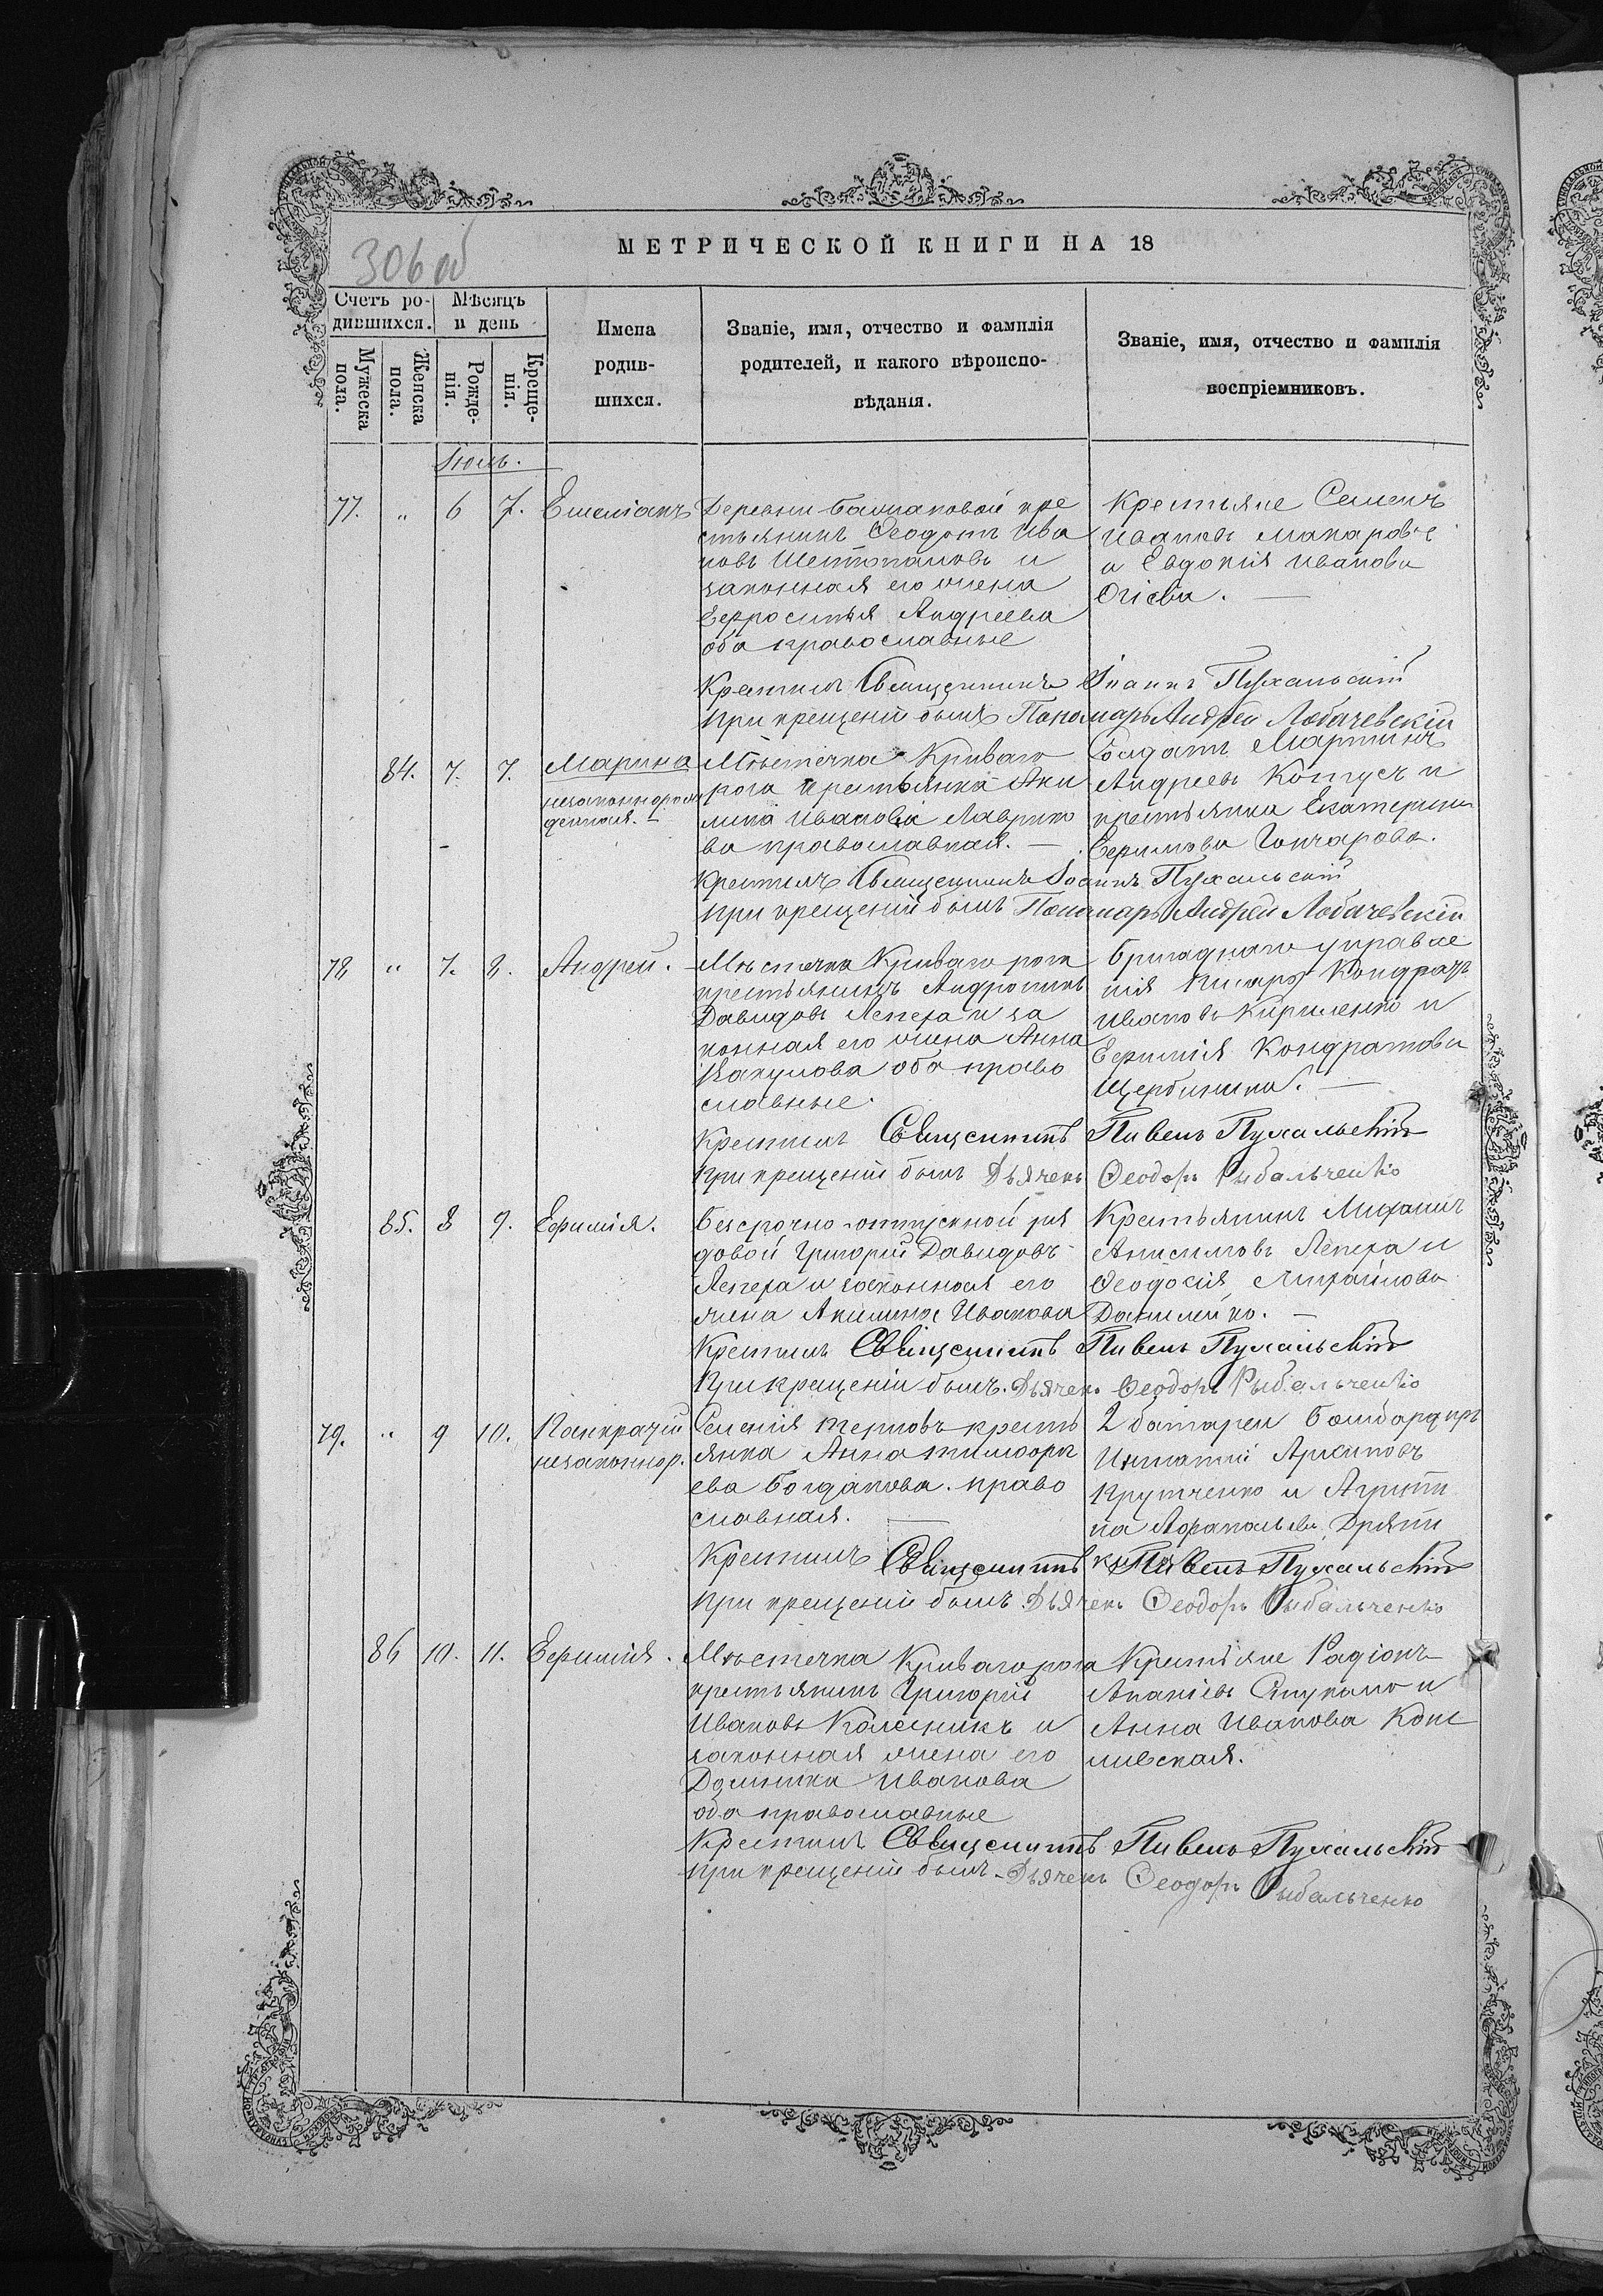 306 об
МЕТРИЧЕСКОЙ КНИГИ НА 18
Счетъ родившихся.
Мужеска пола.
Женска пола.
Мѣсяцъ и день
Рожденія.
Крещенія.
Имена родившихся.
Званіе, имя, отчество и фамилія родителей, и какого вѣроисповѣданія.
Званіе, имя, отчество и фамилія воспріемниковъ.
Іюль.
77. " 6 7. Емеліанъ
Деревни Башаковой кре
стьянинъ Ѳеодотъ Ива
новъ Шептаповъ и
законная его жена
Евросинья Андріева
оба православные
Крестьяне Семенъ
Ивановъ Макаров
и Евдокія Иванова
Крестилъ Священникъ Іоаннъ Пухальскій
При крещеніи былъ Пономарь Андрей Лобачевскій
84. 7. 7. Марина
незаконнорож
денная.
Мѣстечка Криваго
рога крестьянка Аки
лина Иванова Лаврино
ва православная.
Солдатъ Мартинъ
Андреевъ Когусъ и
крестьянка Екатерина
Ефимова Гончарова.
Крестилъ Священникъ Іоаннъ Пухальскій
При крещеніи былъ Пономарь Андрей Лобачевскій
78 " 7. 8. Андрей.
Мѣстечка Криваго рога
крестьянинъ Андроникъ
Давидовъ Лепеха и за
конная его жена Анна
Вакулова оба право
славные.
Бригаднаго управле
нія Писарь Кондратъ
Ивановъ Кириленко и
Ефимія Кондратова
Щербинина.
Крестилъ Священникъ Павелъ Пухальскій
При крещеніи былъ Дьячекъ Ѳеодоръ Рыбальченко
85. 8 9. Ефимія.
Безсрочно-отпускной ря
довой Григорій Давидовъ
Лепеха и законная его
жена Акилина Иванова
Крестьянинъ Михаилъ
Анисимовъ Лепеха и
Ѳеодосія Михайлова
Данилейко.
Крестилъ Священникъ Павелъ Пухальскій
При крещеніи былъ Дьячекъ Ѳеодоръ Рыбальченко
79. " 9 10. Панкратій
незаконнор.
Селенія Терновъ кресть
янка Анна Тимофе
ева Богданова право
славная.
2 батареи Бомбардиръ
Игнатій Архиповъ
Крутченко и Агрип
на
Крестилъ Священникъ Павелъ Пухальскій
При крещеніи былъ Дьячекъ Ѳеодоръ Рыбальченко
86 10. 11. Ефимія.
Мѣстечка Криваго рога
крестьянинъ Григорій
Ивановъ Колесникъ и
законная жена его
Домника Иванова
оба православные
Крестьяне Радіонъ
Ананіевъ Стукало и
Анна Иванова
Крестилъ Священникъ Павелъ Пухальскій
При крещеніи былъ Дьячекъ Ѳеодоръ Рыбальченко